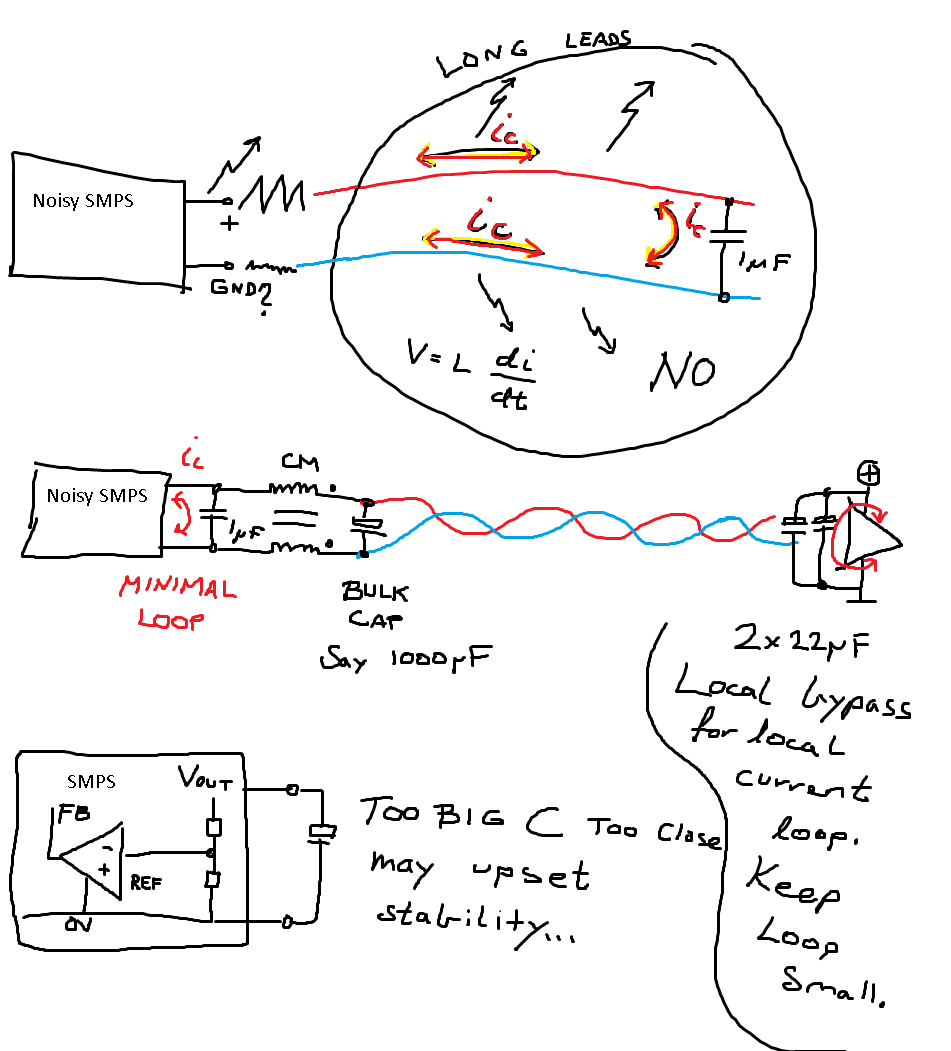 LONG LEADS
ic
Noisy SMPS
+
ic
ic
1μF
GND?
V = L di/dt
NO
ic
CM
Noisy SMPS
1μF
+
MINIMAL
LOOP
BULK
CAP
Say 1000μF
2x22μF
Local bypass
for local
current
loop.
Keep
Loop
Small.
SMPS
VOUT
FB
-
+
REF
0V
TOO BIG C Too Close
may upset
stability...